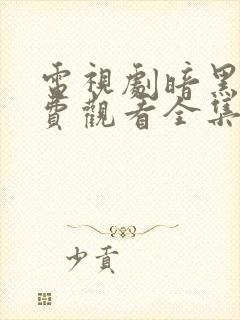 電視劇暗黑
費觀看全集
少貢